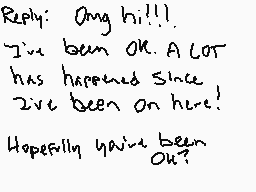 Reply: Omg hi!!!.
I've been OK. A LOT
has happened since
I've been on here!
Hopefully you've been
OK?